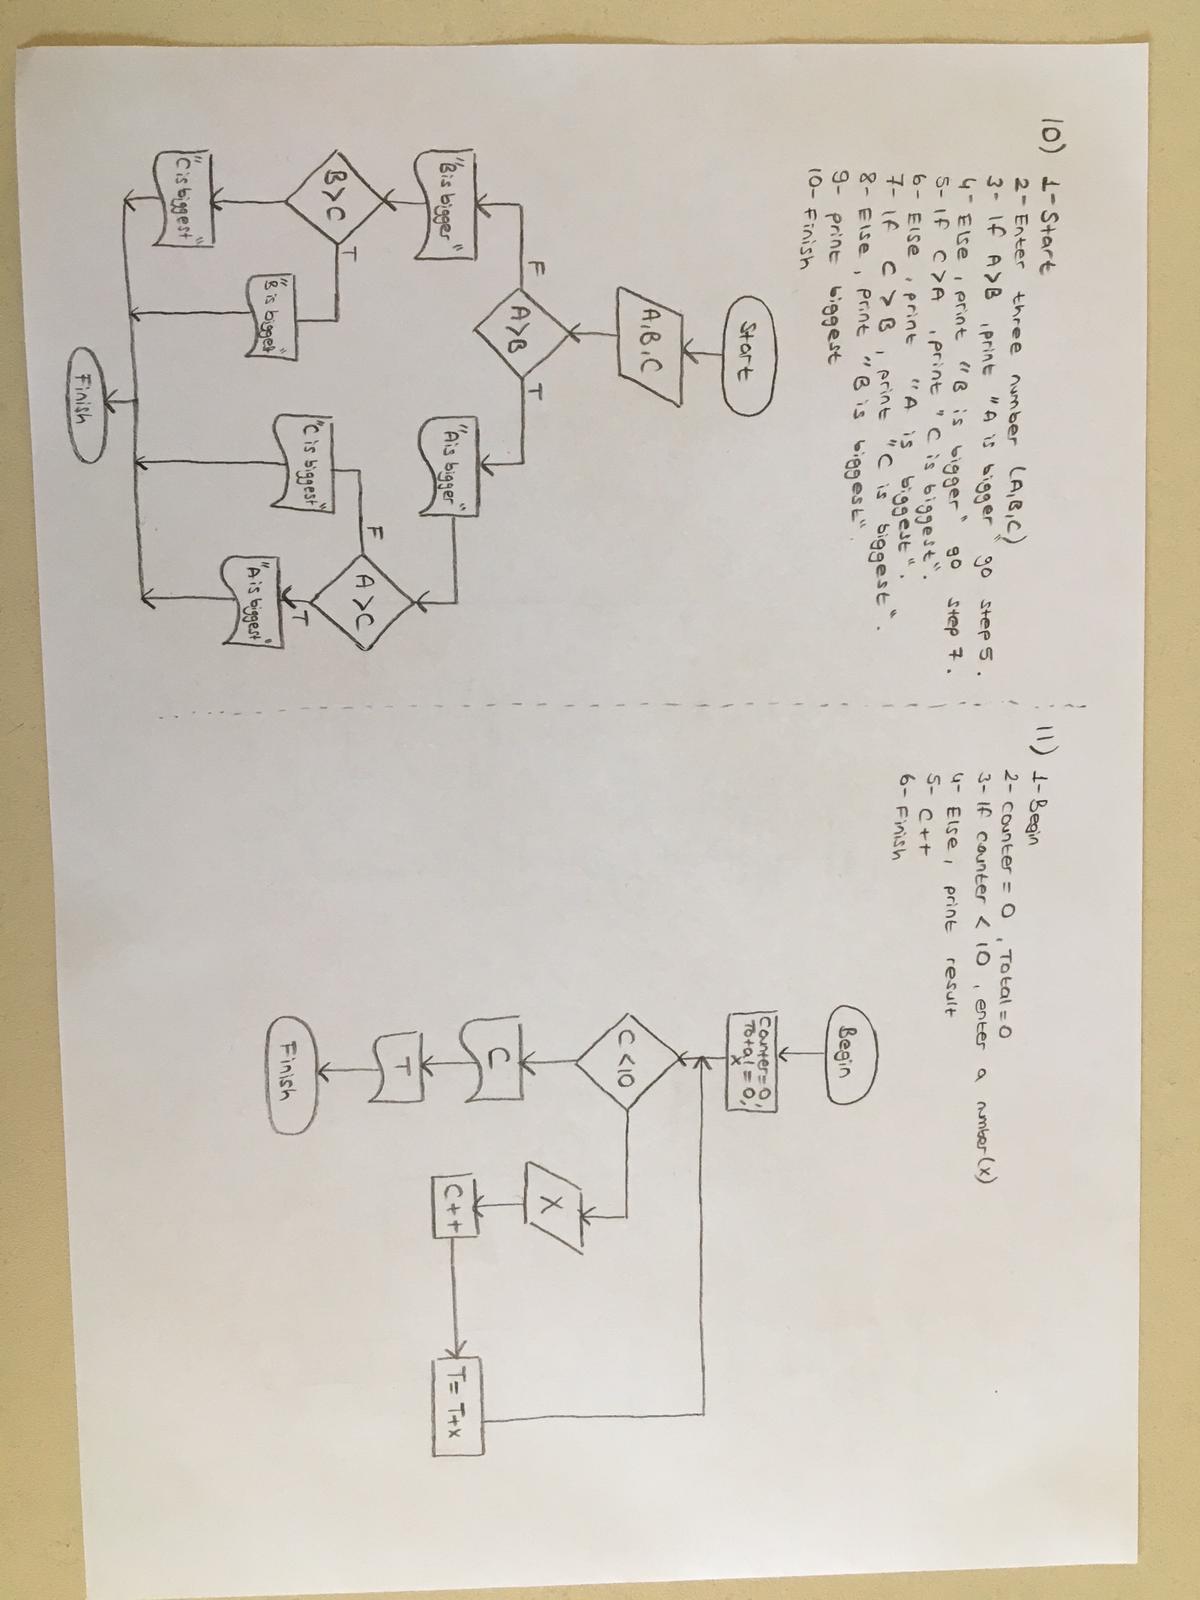 10) 1- Start
2- Enter three number (A,B,C)
3- If A>B ,print "A is bigger" go step 5.
4- Else, print "B is bigger" go step 7.
5- If C>A ,print "C is biggest".
6- Else, print "A is biggest".
7- If C > B , print "C is biggest".
8- Else, print "B is biggest".
9- print biggest
10- Finish
Start
A,B,C
F
A>B
T
"B is bigger"
"A is bigger"
B>C
T
F
A>C
T
"C is biggest"
"B is biggest"
"A is biggest"
"C is biggest"
Finish
11) 1- Begin
2- counter = 0 , Total = 0
3- If counter < 10 , enter a number(x)
4- Else, print result
5- C++
6- Finish
Begin
Counter=0,
Total=0,
x
C<10
X
C
C++
T= T+x
T
Finish